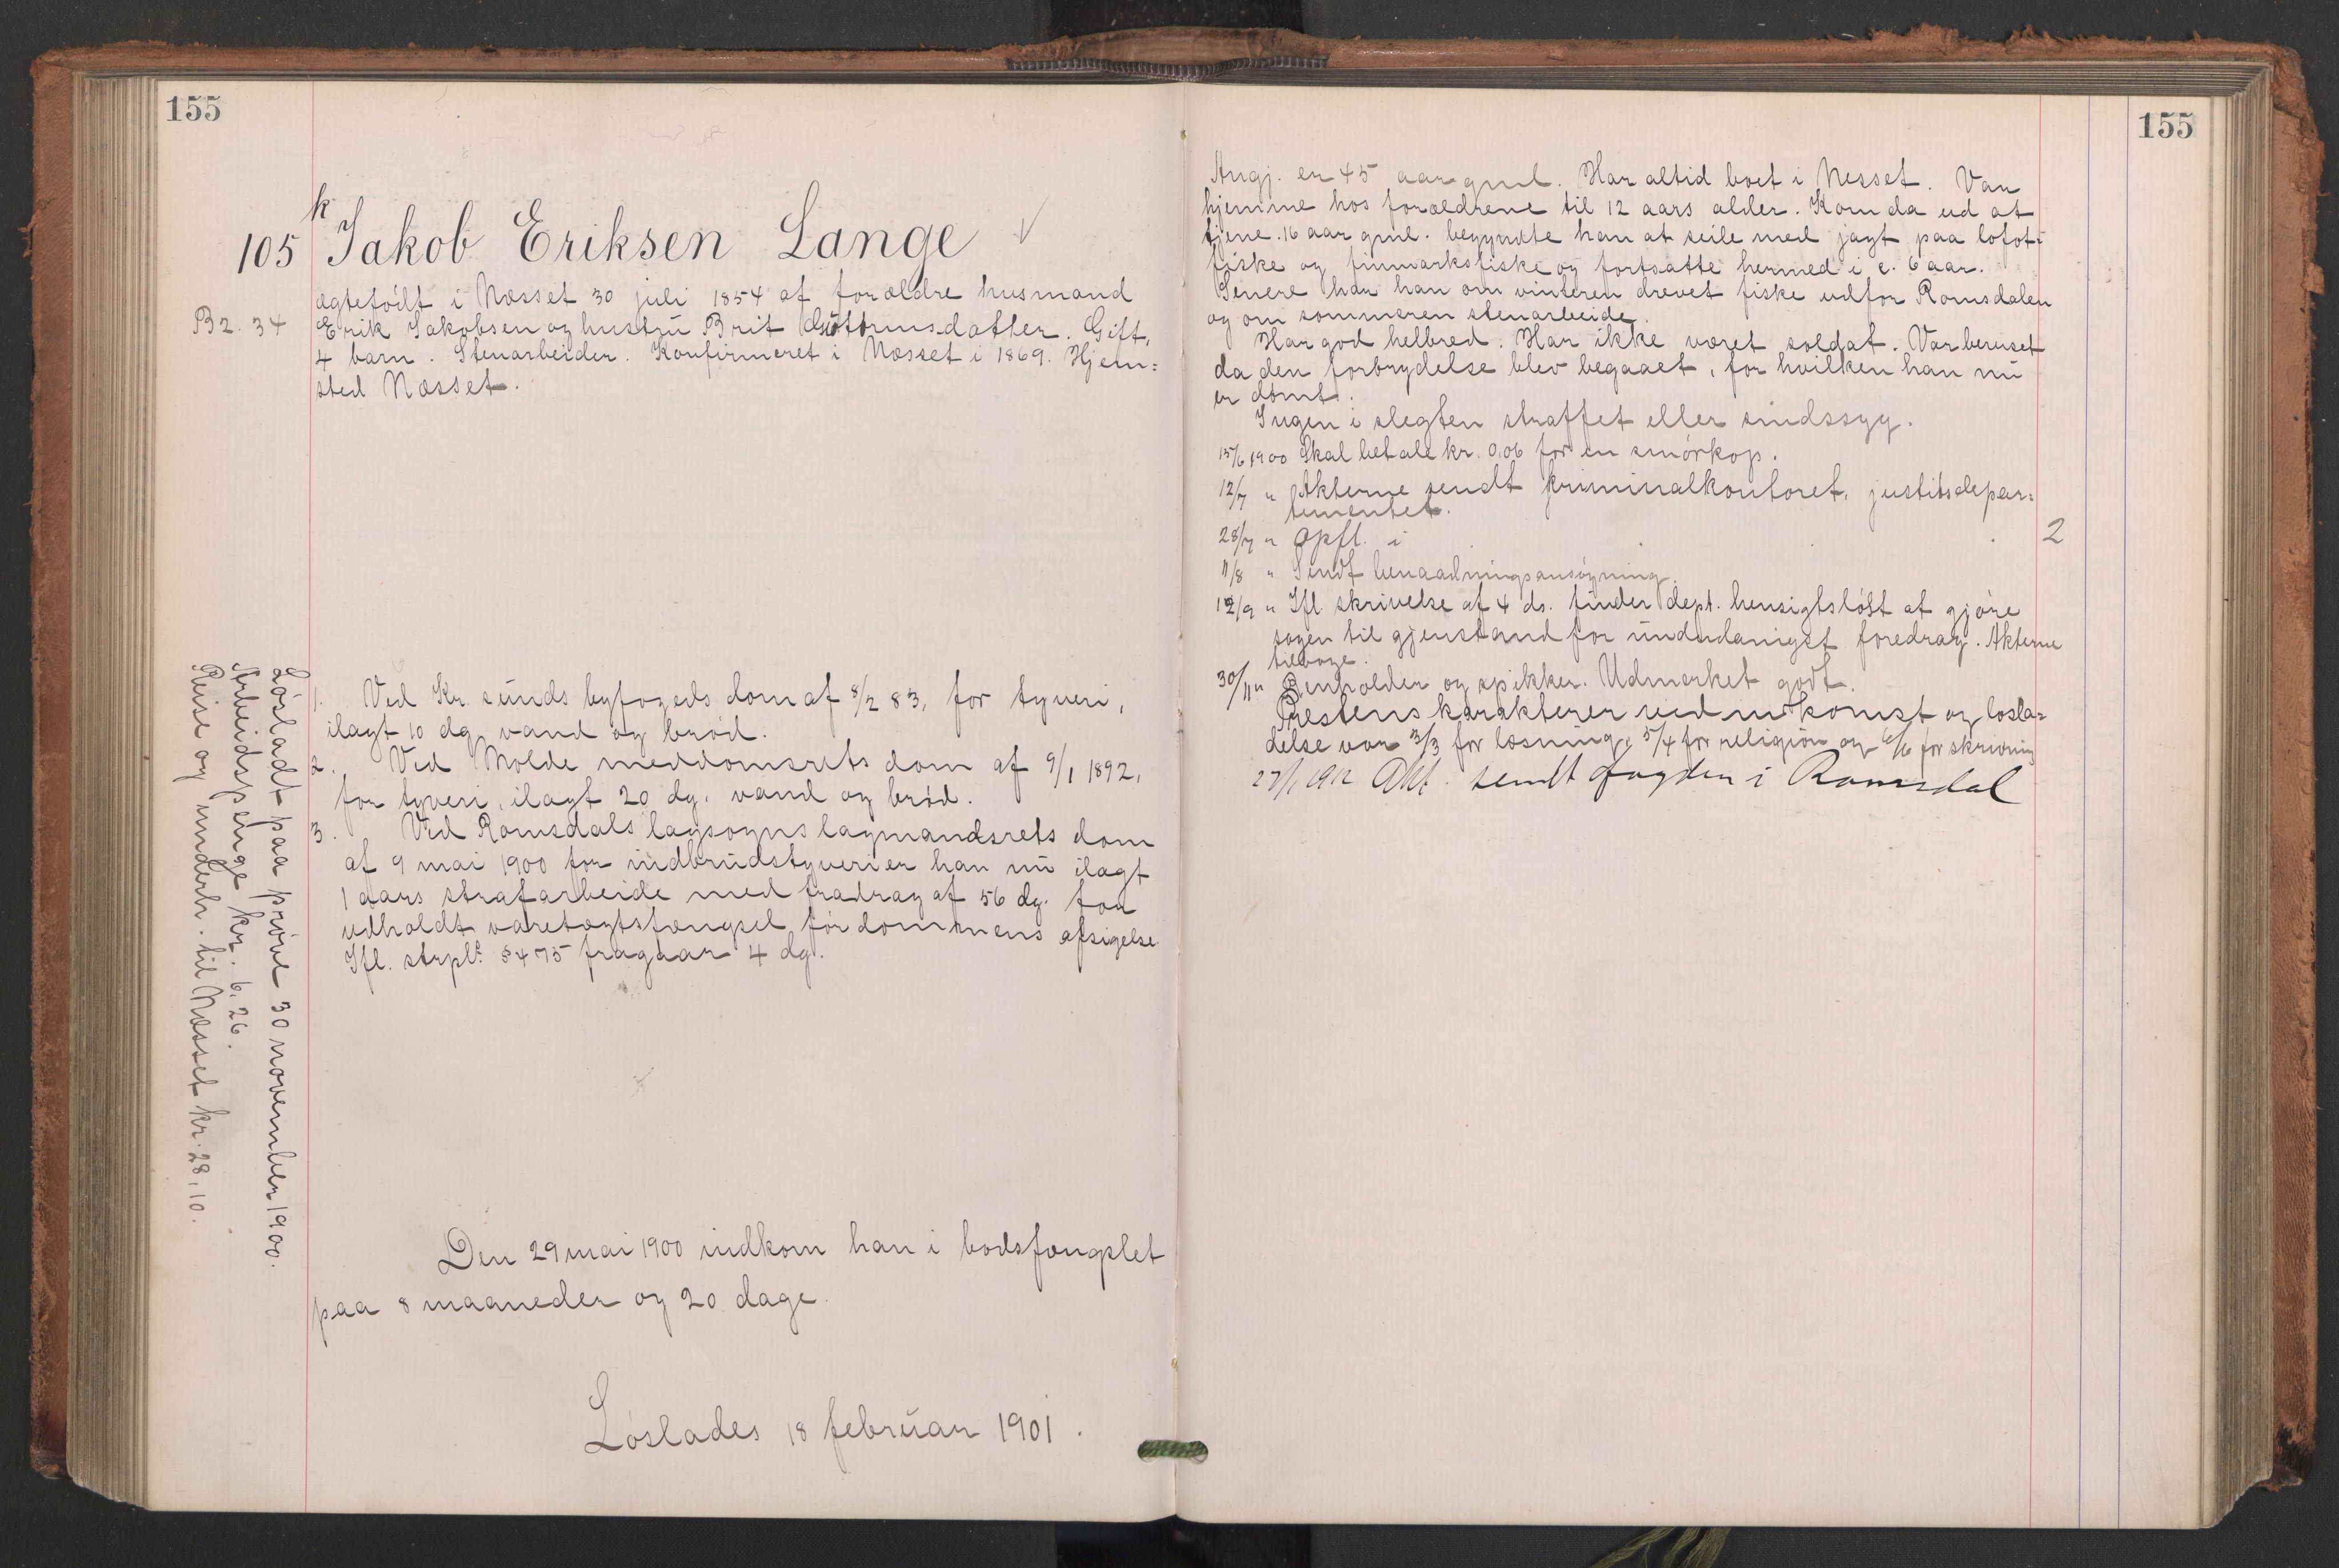 155
k
105 Jakob Eriksen Lange
B2. 34
ægtefödt i Næsset 30 juli 1854 af forældre husmand
Erik Jakobsen og hustru Brit Guttormsdatter. Gift,
4 barn. Stenarbeider. Konfirmeret i Næsset i 1869. Hjem=
sted Næsset.
1. Ved Kr. sunds byfogeds dom af 8/2 83, for tyveri,
ilagt 10 dg. vand og bröd.
2. Ved Molde meddomsrets dom af 9/1 1892,
for tyveri, ilagt 20 dg. vand og bröd.
3. Ved Romsdals lagsogns lagmandsrets dom
af 9 mai 1900 for indbrudstyveri er han nu ilagt
1 aars strafarbeide med fradrag af 56 dg. for
udholdt varetægtsfængsel för dommens afsigelse.
Ifl. strpl. § 475 fragaar 4 dg.
Lösladt paa pröve 30 november 1900.
Arbeidspenge kr. 6,26.
Reise og underh. til Næsset kr. 28,10.
Den 29 mai 1900 indkom han i bodsfængslet
paa 8 maaneder og 20 dage.
Löslades 18 februar 1901.
155
Angj. er 45 aar gml. Har altid boet i Nesset. Var
hjemme hos forældrene til 12 aars alder. Kom da ud at
tjene. 16 aar gml. begyndte han at seile med jagt paa lofot=
fiske og finmarksfiske og fortsatte hermed i c. 6 aar.
Senere har han om vinteren drevet fiske udfor Romsdalen
og om sommeren stenarbeide.
Har god helbred. Har ikke været soldat. Var beruset
da den forbrydelse blev begaaet, for hvilken han nu
er dömt.
Ingen i slegten straffet eller sindssyg.
15/6 1900 Skal betale kr. 0,06 for en smörkop.
12/7 " Akterne sendt kriminalkontoret, justitsdepar=
tementet.
28/7 " Opfl. i 2
11/8 " Sendt benaadningsansögning.
12/9 " Ifl. skrivelse af 4 ds. finder dept. hensigtslöst at gjöre
sagen til gjenstand for underdanigst foredrag. Akterne
tilbage.
30/11 " Renholder og spikker. Udmerket godt.
Prestens karakterer ved indkomst og losla=
delse var 3/3 for læsning, 5/4 for religion og 6/6 for skrivning
27/1 1912 Akt. sendt fogden i Romsdal